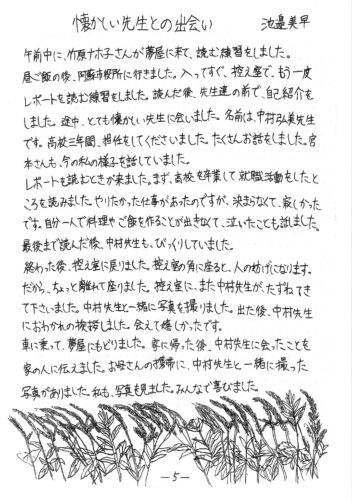 懐かしい先生との出会い 池邉美早
午前中に、竹原ナホ子さんが夢屋に来て、読む練習をしました。
昼ご飯の後、阿蘇市役所に行きました。入ってすぐ、控え室で、もう一度
レポートを読む練習をしました。読んだ後、先生達の前で、自己紹介を
しました。途中、とても懐かしい先生に会いました。名前は、中村弘美先生
です。高校三年間、担任をしてくださいました。たくさんお話をしました。宮
本さんも、今の私の様子を話していました。
レポートを読むときが来ました。まず、高校を卒業して就職活動をしたと
ころを読みました。やりたかった仕事があったのですが、決まらなくて、寂しかった
です。自分一人で料理やご飯を作ることが出きなくて、泣いたことも話しました。
最後まで読んだ後、中村先生も、びっくりしていました。
終わった後、控え室に戻りました。控え室の角に座ると、人の妨げになります。
だから、ちょっと離れて座りました。控え室に、また中村先生が、たずねてき
て下さいました。中村先生と一緒に写真を撮りました。出た後、中村先生
におわかれの挨拶しました。会えて嬉しかったです。
車に乗って、夢屋にもどりました。家に帰った後、中村先生に会ったことを
家の人に伝えました。お母さんの携帯に、中村先生と一緒に撮った
写真がありました。私も、写真も見ました。みんなで喜びました。
-5-